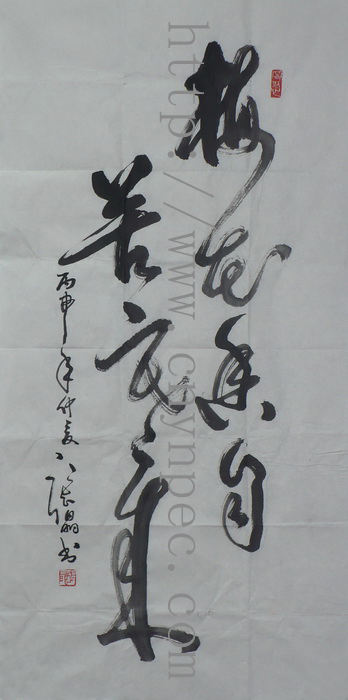 梅花香自
苦寒来
丙申年仲夏
http://www.ctynpec.com